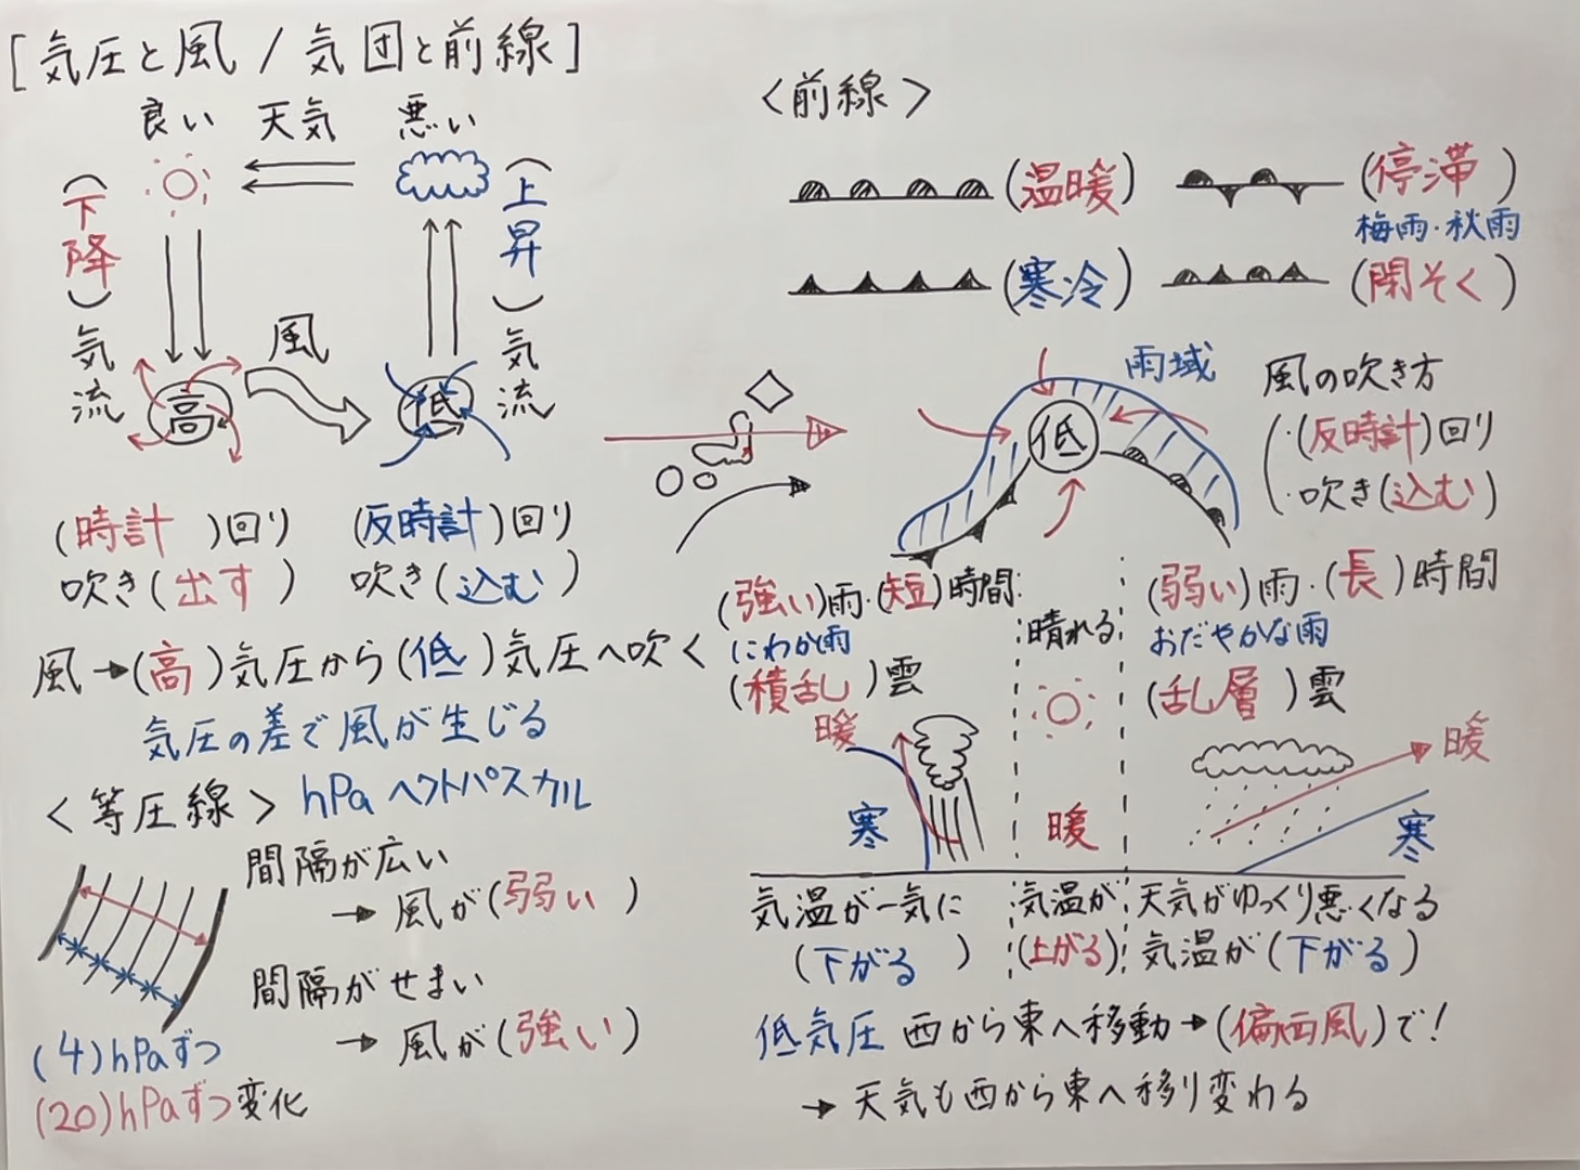 [気圧と風 / 気団と前線]
良い 天気 悪い
(下降)気流
(上昇)気流
風
高
低
(時計)回り
吹き(出す)
(反時計)回り
吹き(込む)
風→(高)気圧から(低)気圧へ吹く
気圧の差で風が生じる
<等圧線> hPa ヘクトパスカル
間隔が広い
→ 風が(弱い)
間隔がせまい
→ 風が(強い)
(4)hPaずつ
(20)hPaずつ変化
<前線>
(温暖)
(停滞)
梅雨・秋雨
(寒冷)
(閉そく)
雨域
低
風の吹き方
・(反時計)回り
・吹き(込む)
(強い)雨・(短)時間
にわか雨
(積乱)雲
暖
寒
晴れる
暖
(弱い)雨・(長)時間
おだやかな雨
(乱層)雲
暖
寒
気温が一気に
(下がる)
気温が
(上がる)
天気がゆっくり悪くなる
気温が(下がる)
低気圧 西から東へ移動→(偏西風)で!
→ 天気も西から東へ移り変わる